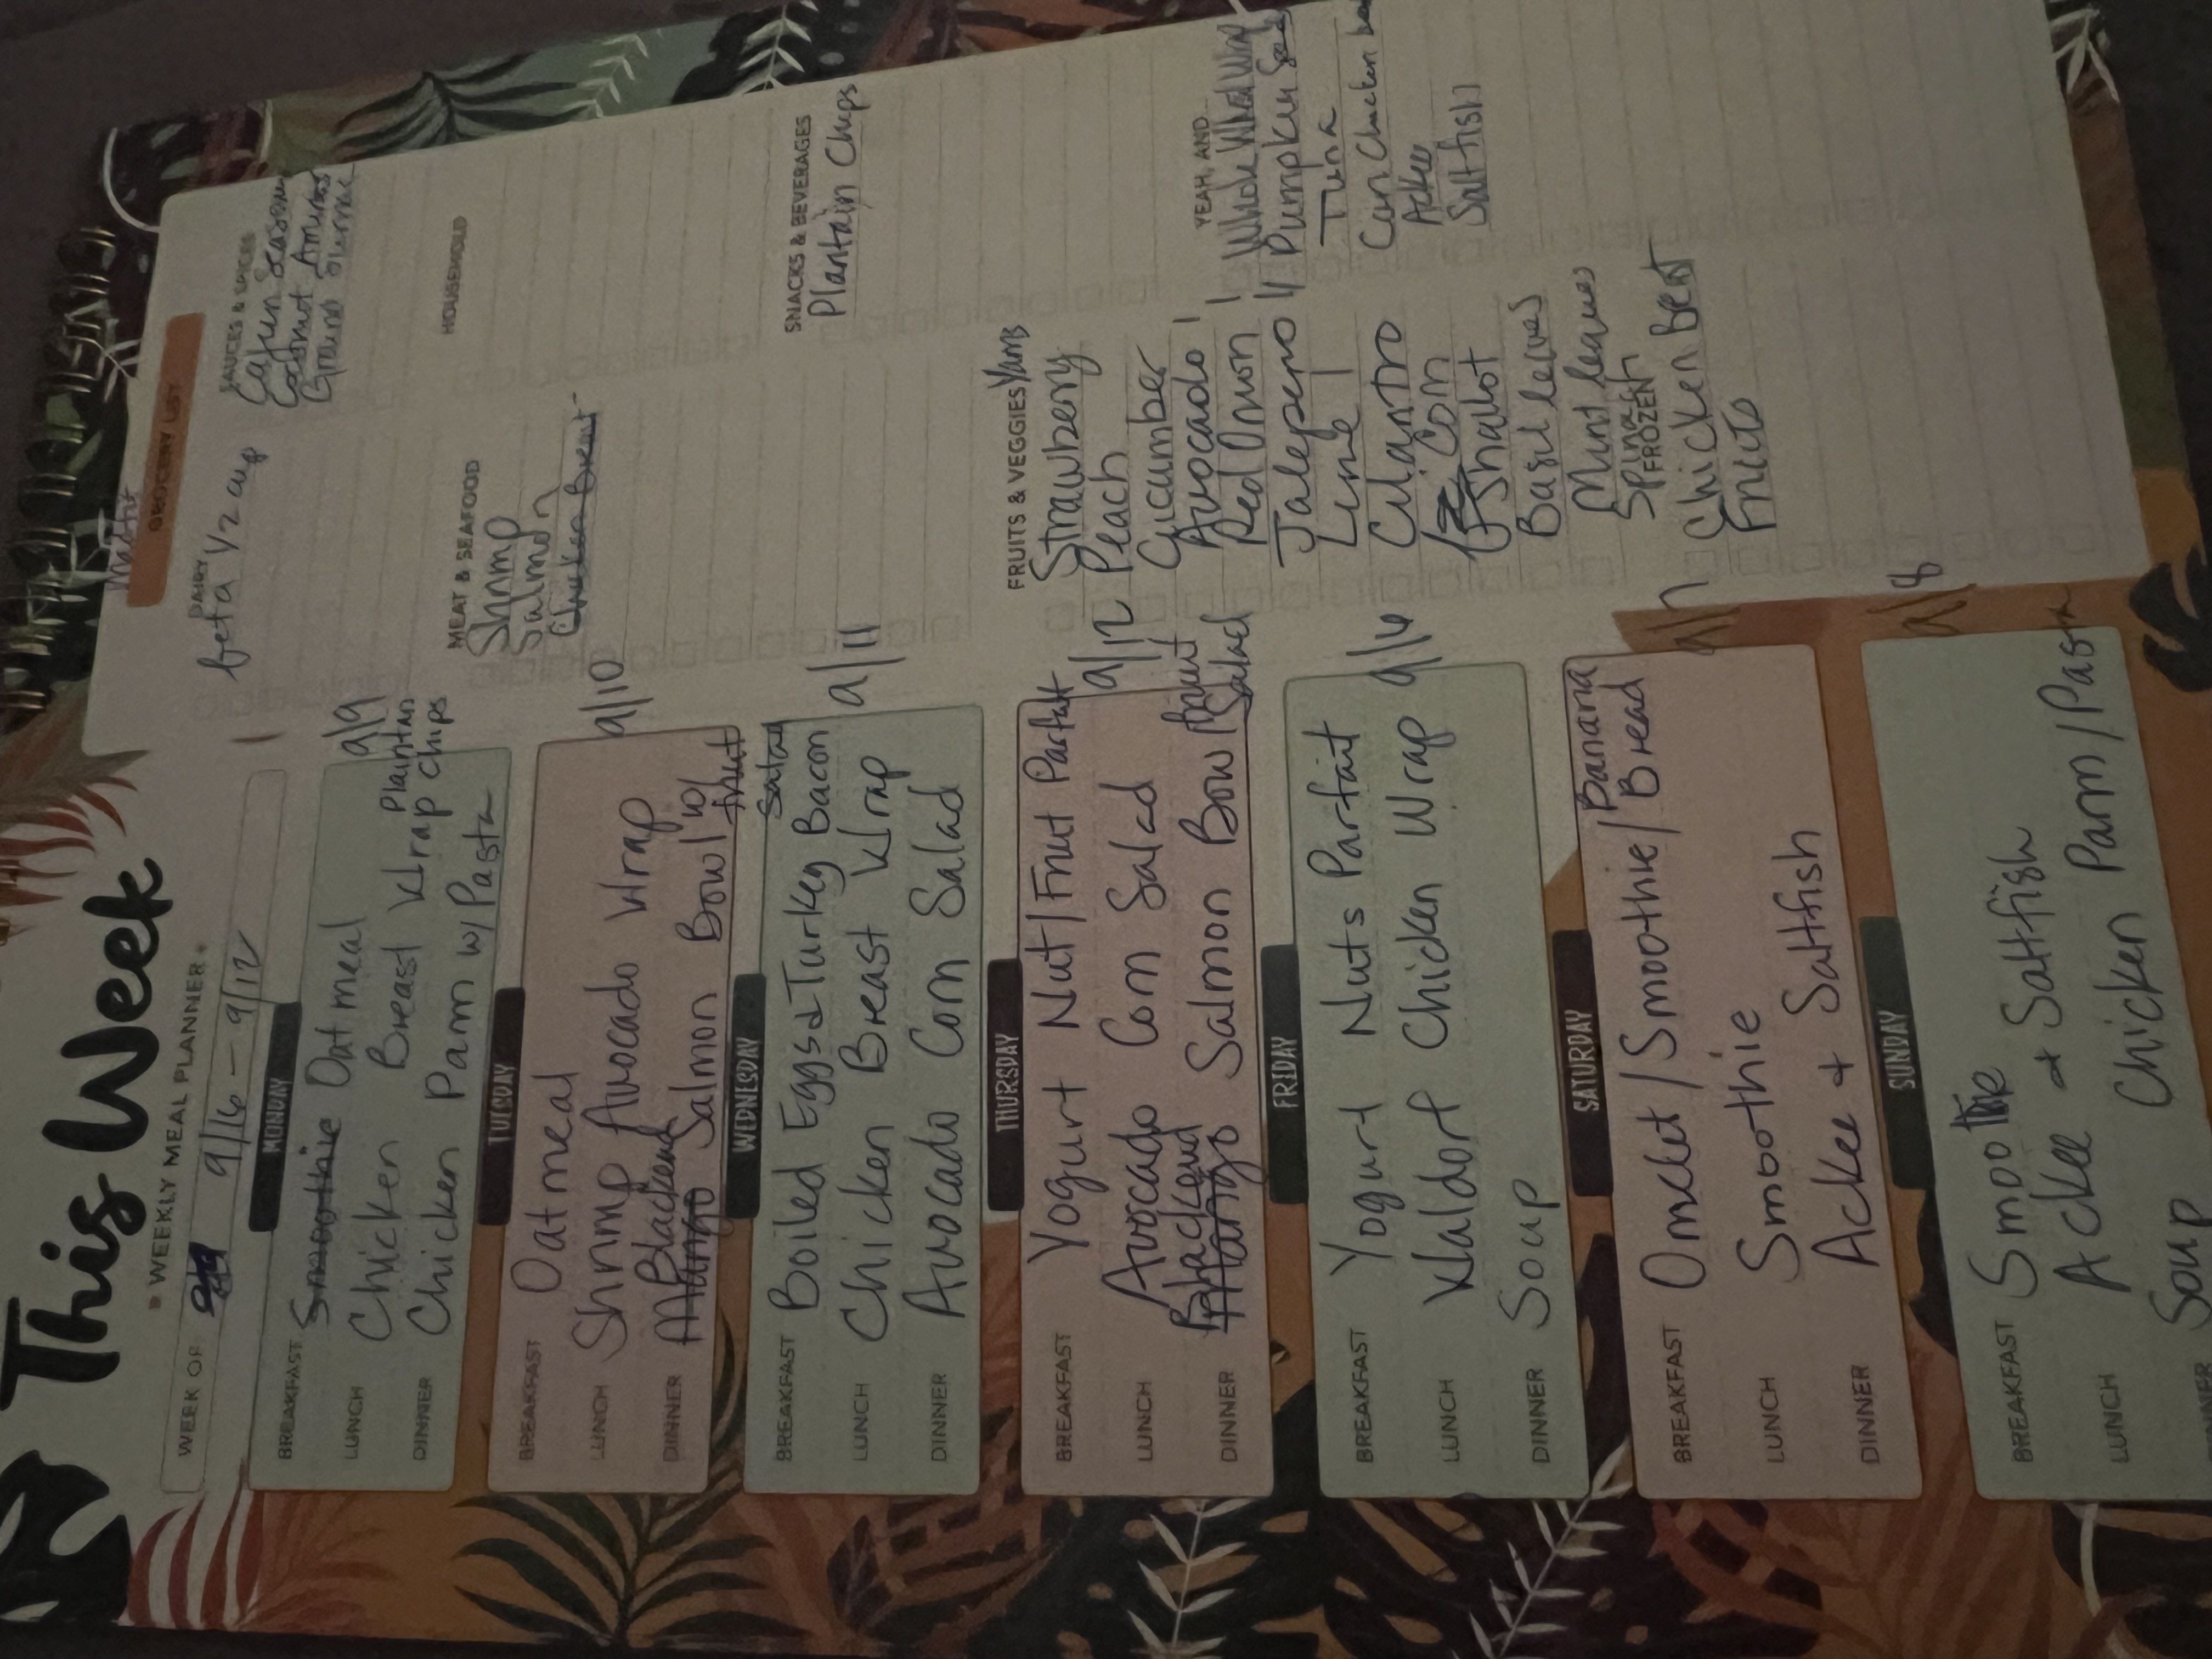 This Week
• WEEKLY MEAL PLANNER •
WEEK OF 9/6 - 9/12
MONDAY 9/9
BREAKFAST Smoothie Oatmeal
LUNCH Chicken Breast Wrap Plaintan Chips
DINNER Chicken Parm w/ Pasta
TUESDAY 9/10
BREAKFAST Oatmeal
LUNCH Shrimp Avocado Wrap
Blackend
DINNER Mango Salmon Bowl w/ fruit
WEDNESDAY 9/11
Salad
BREAKFAST Boiled Eggs & Turkey Bacon
LUNCH Chicken Breast Wrap
DINNER Avocado Corn Salad
THURSDAY 9/12
BREAKFAST Yogurt Nut/Fruit Parfait
LUNCH Avocado Corn Salad
Blackend
DINNER Mango Salmon Bow fruit Salad
FRIDAY 9/6
BREAKFAST Yogurt Nuts Parfait
LUNCH Waldorf Chicken Wrap
DINNER Soup
SATURDAY 9/7
BREAKFAST Omelet/Smoothie/Banana Bread
LUNCH Smoothie
DINNER Ackee & Saltfish
SUNDAY 9/8
BREAKFAST Smoothie
LUNCH Ackee & Saltfish
Chicken Parm/Pasta
Soup
GROCERY LIST
DAIRY
feta 1/2 cup
MEAT & SEAFOOD
Shrimp
Salmon
Chicken Breast
FRUITS & VEGGIES Yams
Strawberry
Peach
Cucumber
Avocado 1
Red Onion 1
Jalepeno 1/2
Lime 1
Cilantro
Corn
Shallot
Basil leaves
Mint leaves
Spinach
FROZEN
Chicken Best
Fruits
SAUCES & SPICES
Cajun
Coconut Aminos
Ground
HOUSEHOLD
SNACKS & BEVERAGES
Plantain Chips
YEAH, AND...
Whole Wheat Wrap
Pumpkin Seed
Tuna
Can Chicken
Ackee
Saltfish